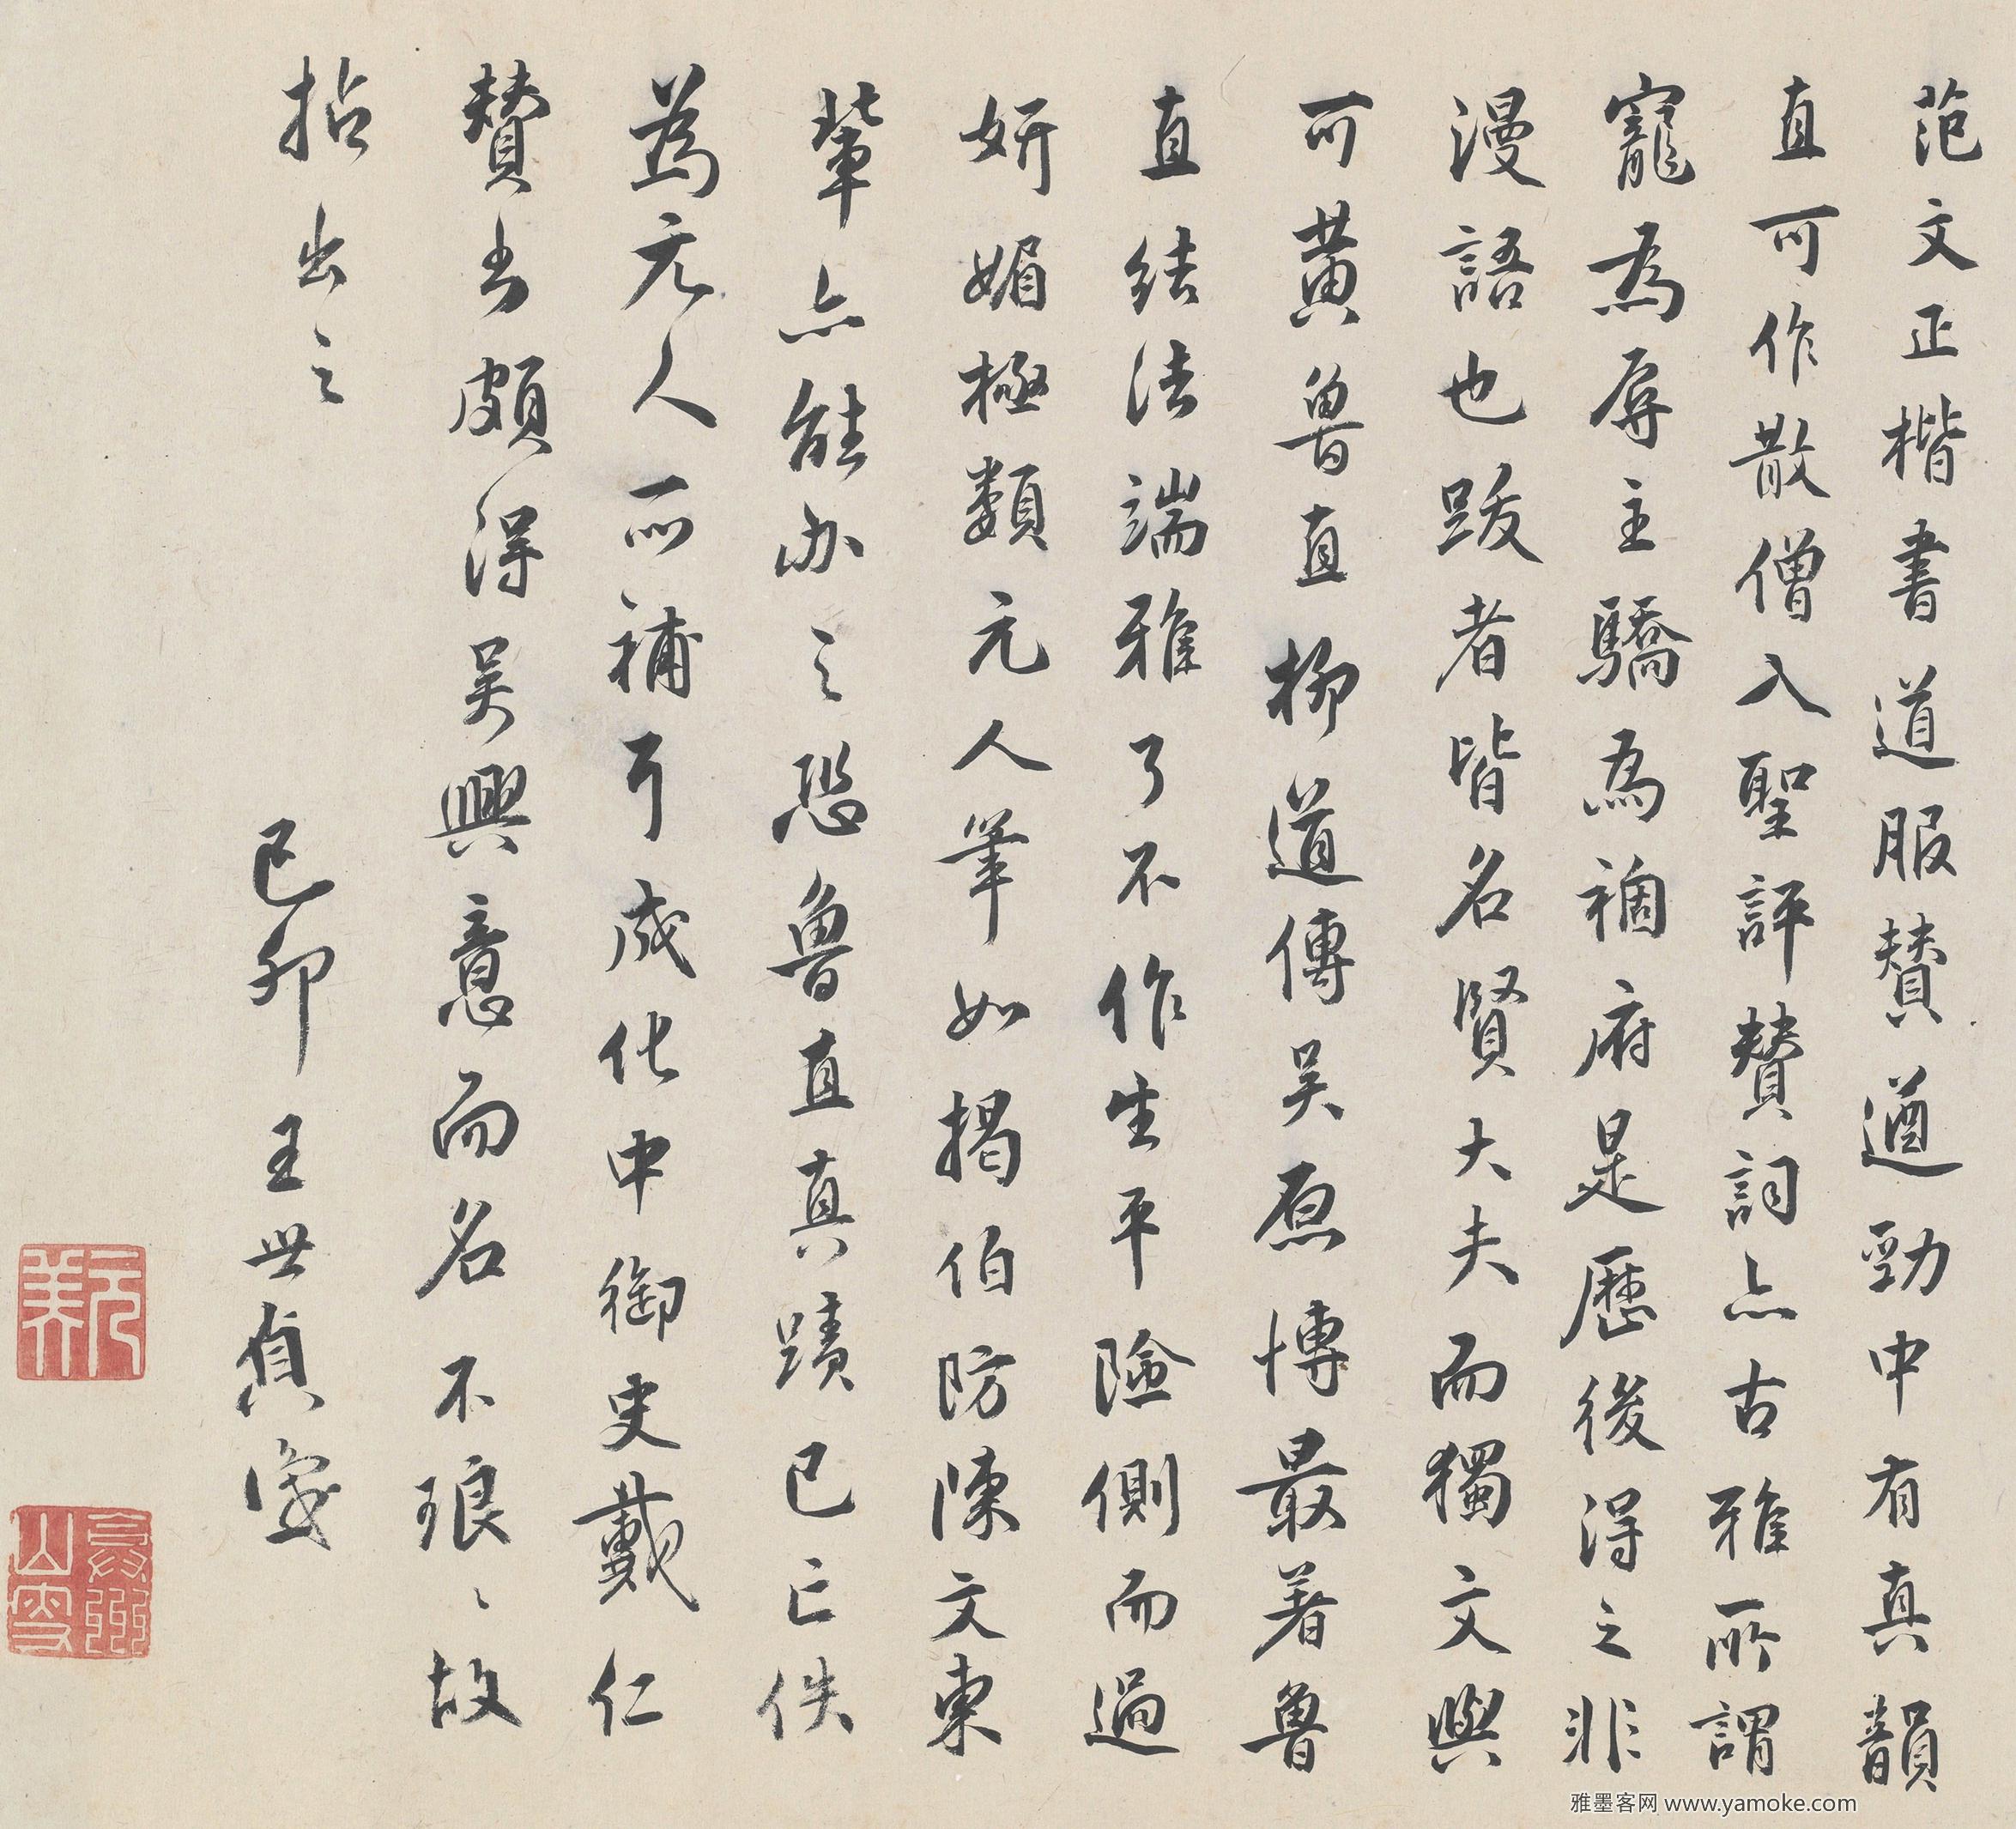 范文正楷書道服贊遒勁中有真韻
直可作散僧入聖評贊詞亦古雅所謂
寵為辱主驕為禍府是歷後得之非
漫語也跋者皆名賢大夫而獨文與
可黃魯直柳道傳吳原博最著魯
直結法端雅了不作生平險側而過
妍媚極類元人筆如揭伯防陳文東
輩亦能办之恐魯直真蹟已亡佚
為元人所補耳成化中御史戴仁
贊書頗得吳興意而名不琅〻故
拈出之
己卯王世貞識
雅墨客网 www.yamoke.com